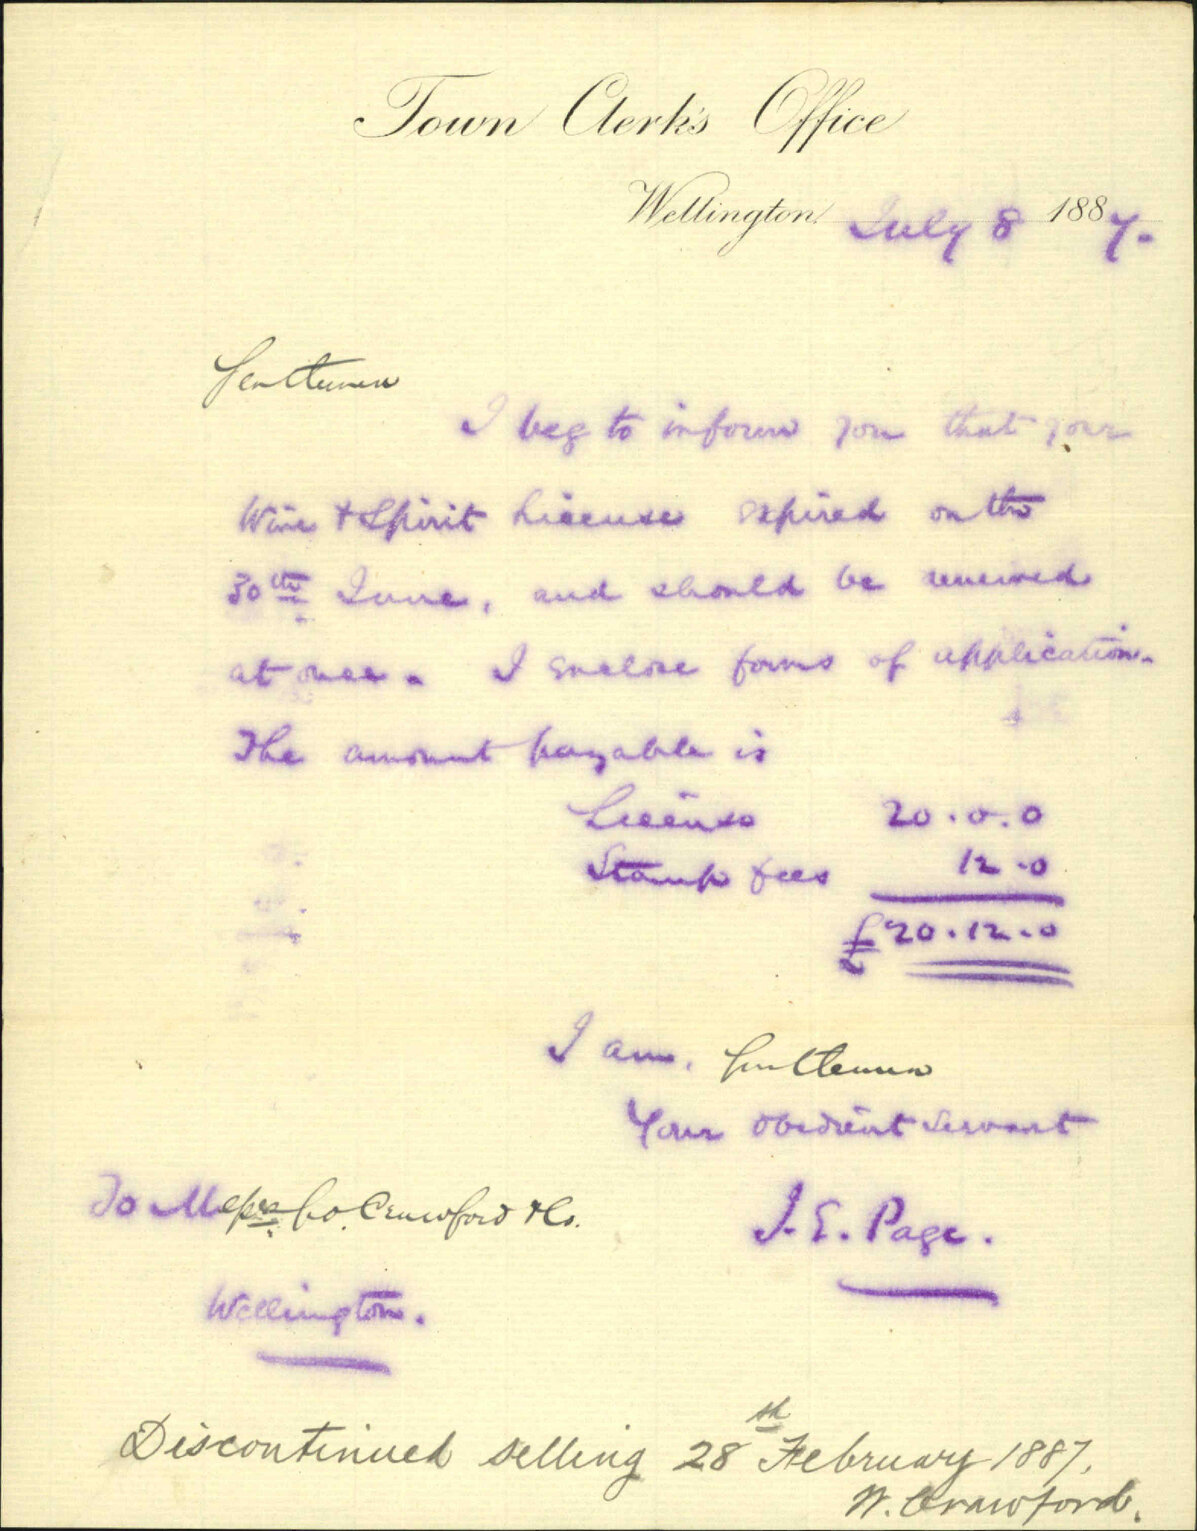 Town Clerk's Office
Wellington July 8 1887.
Gentlemen
I beg to inform you that your
Wine & Spirit License expired on the
30th June, and should be renewed
at once. I enclose forms of application.
The amount payable is
License 20.0.0
Stamp fees 12.0
£20.12.0
I am, Gentlemen
Your obedient servant
To Messrs Crawford & Co.
J. E. Page.
Wellington.
Discontinued selling 28th February 1887.
W. Crawford.